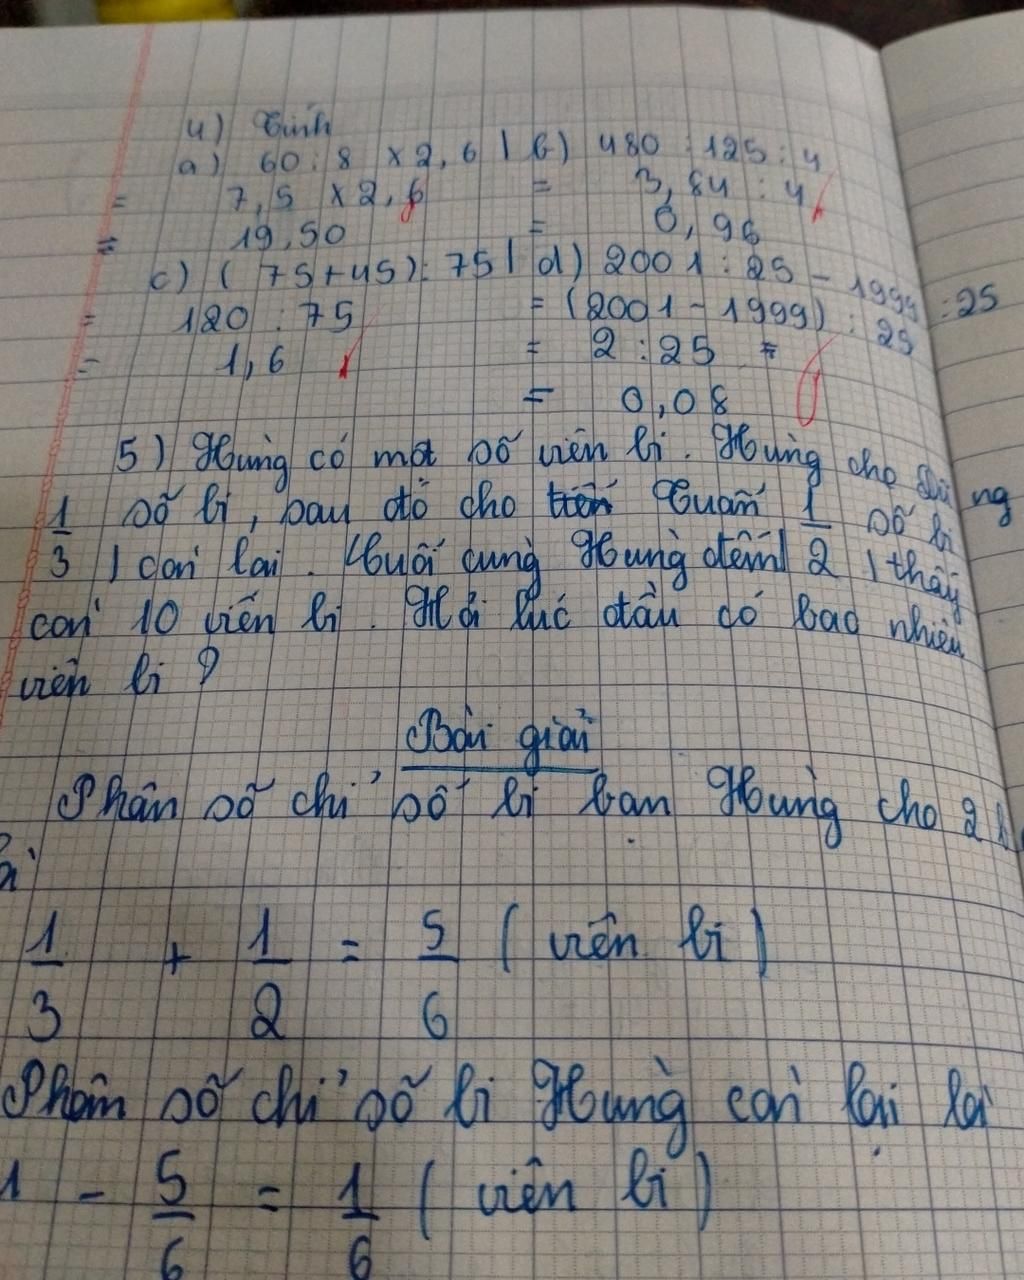 4) Tính
a) 60 : 8 x 2,6 | b) 480 : 125 : 4
= 7,5 x 2,6 = 3,84 : 4
= 19,50 = 0,96
c) (75+45) : 75 | d) 2001 : 25 - 1999 : 25
= 120 : 75 = (2001 - 1999) : 25
= 1,6 = 2 : 25 =
= 0,08
5) Hùng có một số viên bi. Hùng cho Dũng
1/3 số bi, sau đó cho Tuấn 1/2 số bi
còn lại. Cuối cùng Hùng đếm thấy
còn 10 viên bi. Hỏi lúc đầu có bao nhiêu
viên bi ?
Bài giải
Phân số chỉ số bi bạn Hùng cho 2
1/3 + 1/2 = 5/6 (viên bi)
Phân số chỉ số bi Hùng còn lại là
1 - 5/6 = 1/6 (viên bi)